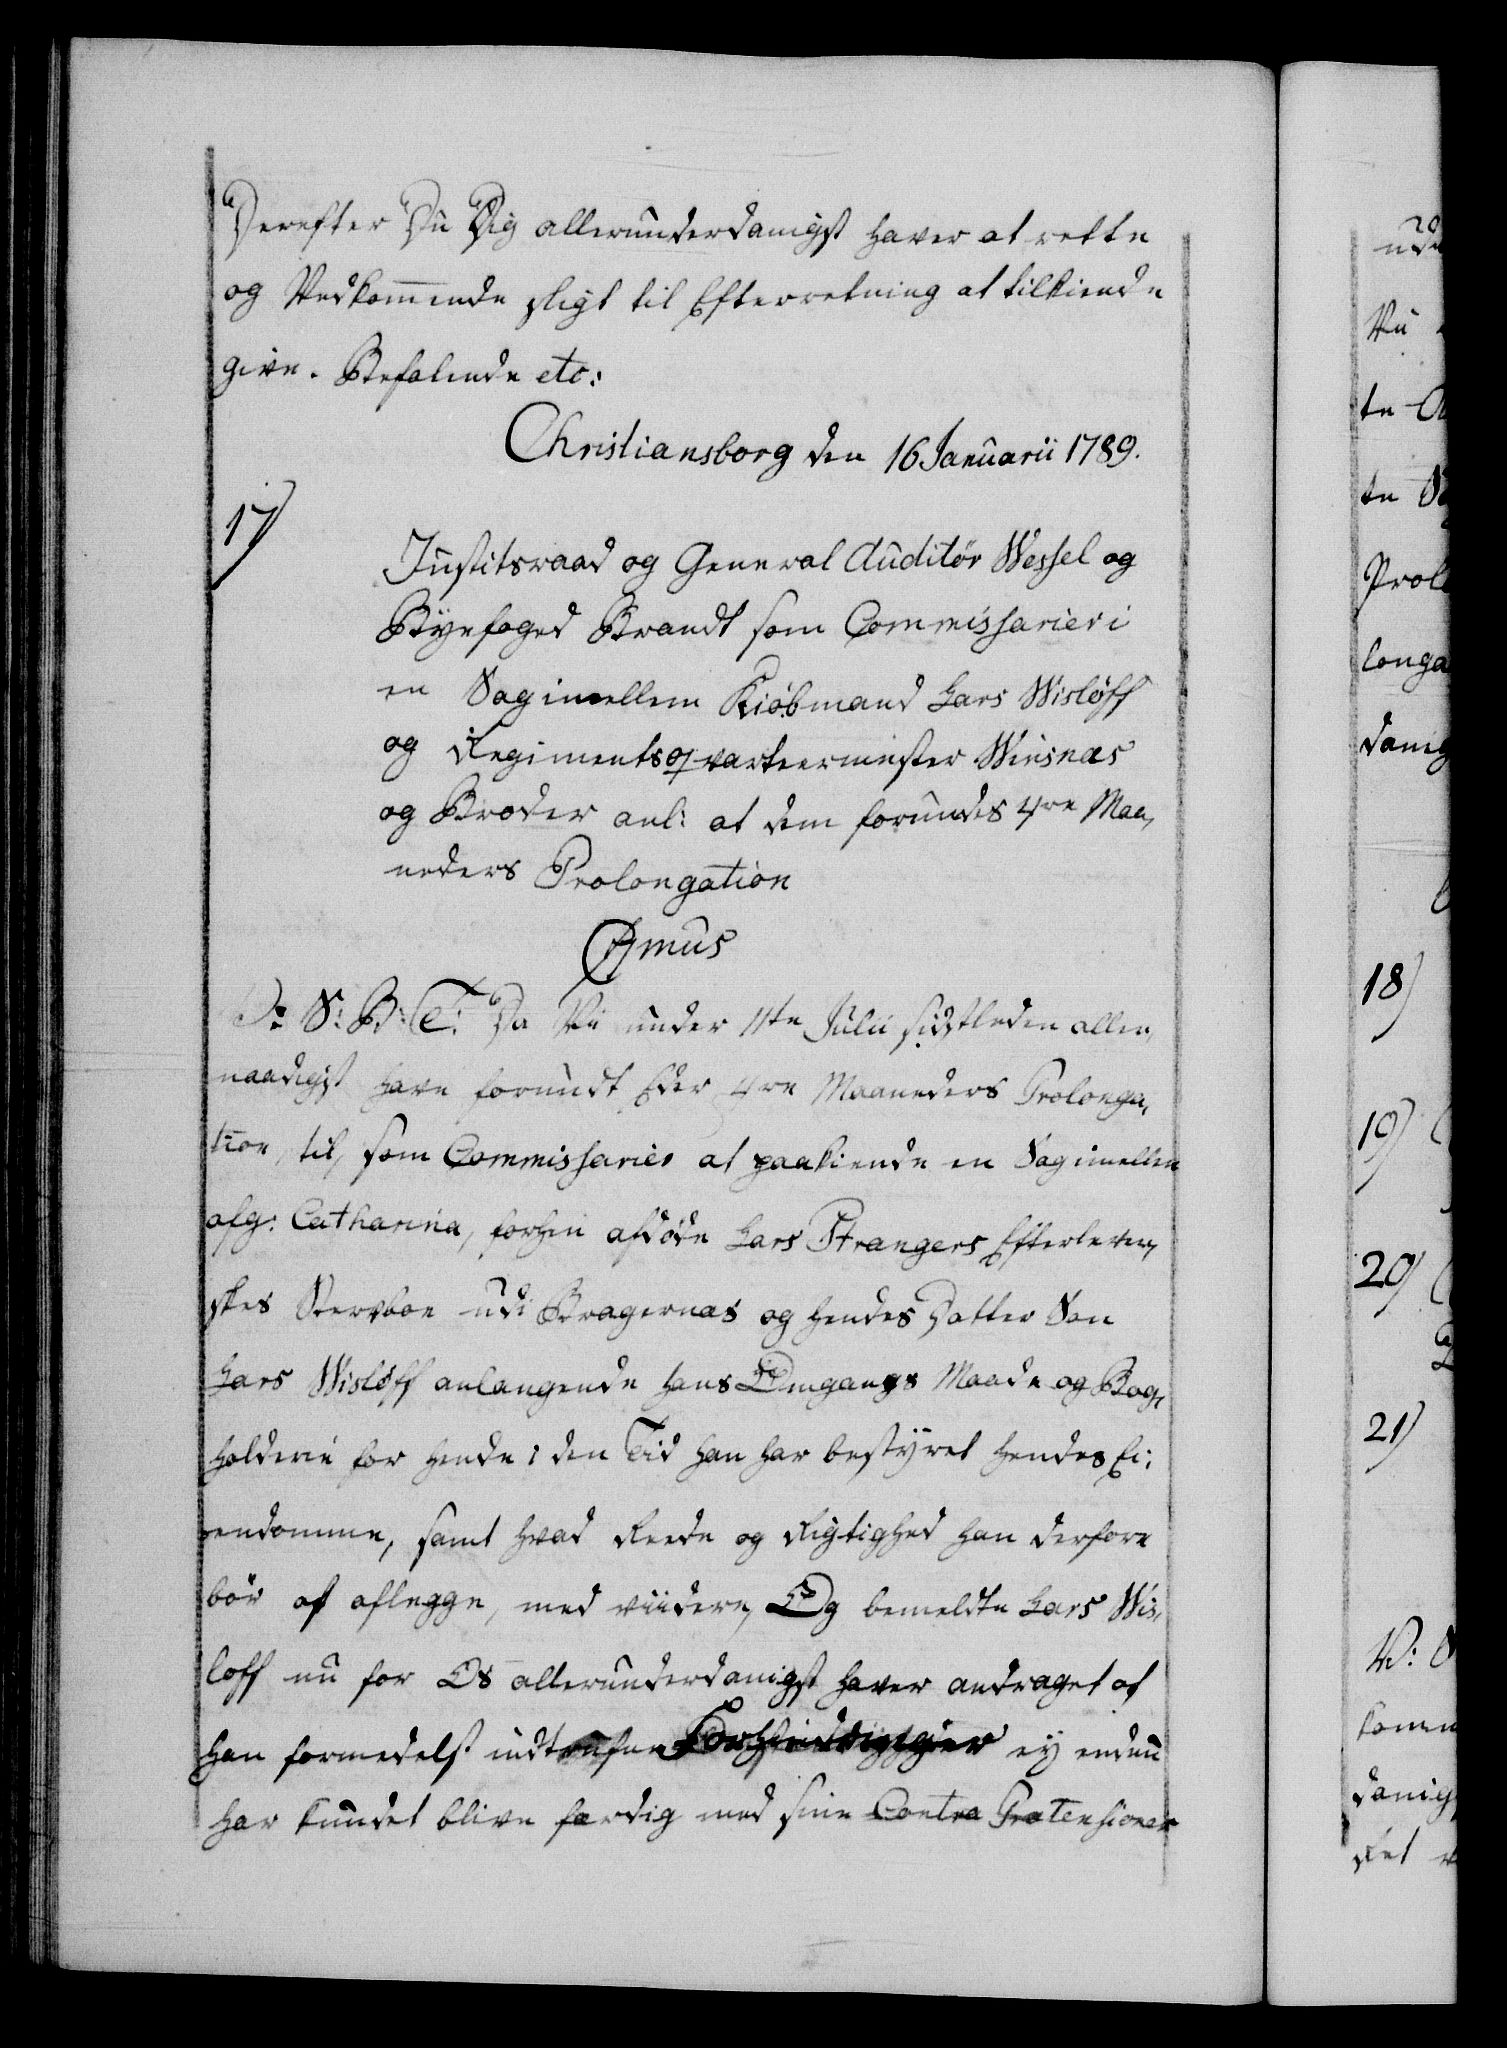 Derefter Du Dig allerunderdanigst haver at rette
og Vedkommende sligt til Efterretning at tilkiende
give. Befalende etc:
Christiansborg den 16 Januarii 1789.
17)
Justitsraad og General Auditør Wessel og
Byefoged Brandt som Commissarier i
en Sag imellem Kiøbmand Lars Wisløff
og Regimentsqvarteermester Wiisnæs
og Broder anl: at dem forundes 4re Maa,
neders Prolongation
C7mus
V: S: B: T: Da Vi under 11te Julii sidstleden aller,
naadigst have forundt Eder 4re Maaneders Prolonga,
tion, til, som Commissarier at paakiende en Sag imellem
afg: Catharina, forhen afdøde Lars Strangers Efterlever,
skes Sterboe udi Bragernæs og hendes Datter Søn
Lars Wisløff anlangende hans Omgangs Maade og Bog,
holderie for hende i den Tid han har bestyret hendes Ei:
endomme, samt hvad Rede og Rigtighed han derfore
bør at aflegge, med viidere, Og bemeldte Lars Wis,
løff nu for Os allerunderdanigst haver andraget at
han formedelst indtrufne Forhindringer ey endnu
har kundet blive færdig med sine Contra Prætensioner
18)
19)
20)
21)